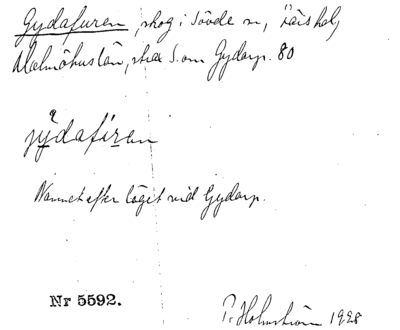 Gydafuren, skog i Sövde sn, Färs hd,
Malmöhus län, strax S. om Gydarp. 80
jy̆dafi̇ren
Namnet efter läget vid Gydarp.
Nr 5592.
P. Holmström 1928